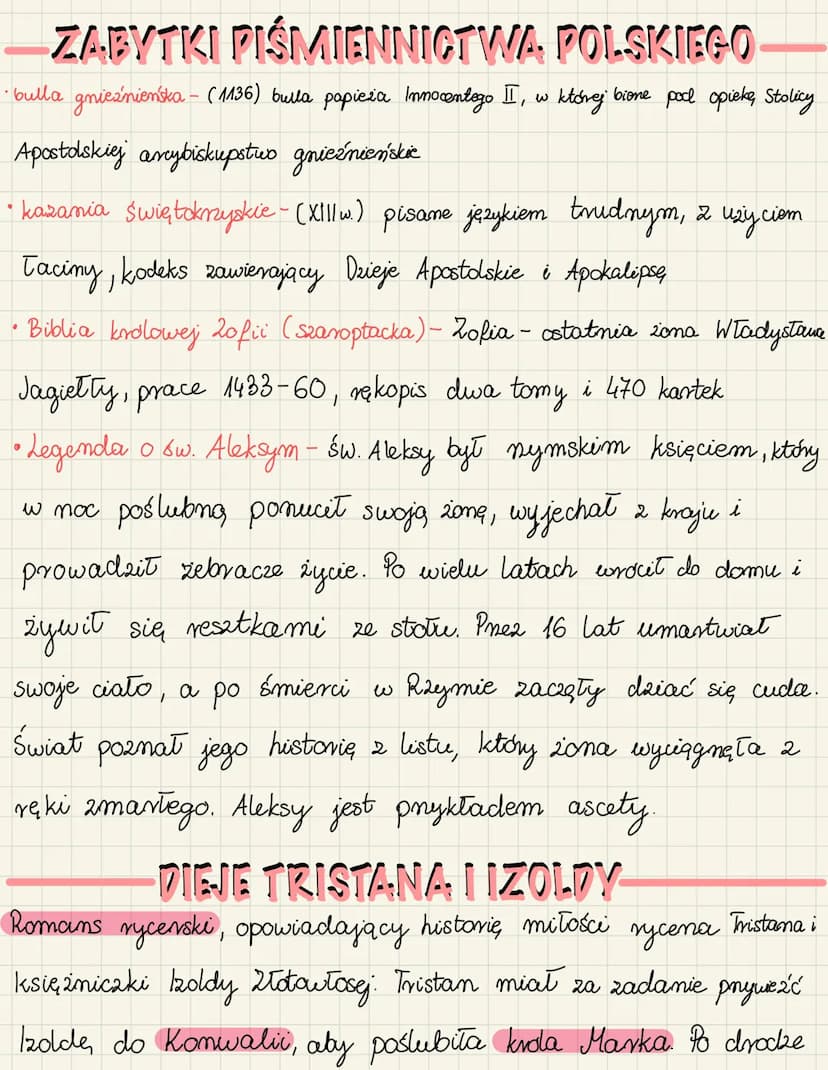 ZABYTKI PIŚMIENNICTWA POLSKIEGO
• bulla gnieźnieńska - (1136) bulla papieża Innocentego II, w której bione pod opiekę Stolicy
Apostolskiej arcybiskupstwo gnieźnieńskie
• kazania świętokrzyskie - (XIII w.) pisane językiem trudnym, z użyciem
łaciny, kodeks zawierający Dzieje Apostolskie i Apokalipsę
• Biblia królowej Zofii (szaroptacka) - Zofia - ostatnia żona Władysława
Jagiełły, prace 1433-60, rękopis dwa tomy i 470 kartek
• Legenda o św. Aleksym - św. Aleksy był rzymskim księciem, który
w noc poślubną porzucił swoją żonę, wyjechał z kraju i
prowadził żebracze życie. Po wielu latach wrócił do domu i
żywił się resztkami ze stołu. Przez 16 lat umartwiał
swoje ciało, a po śmierci w Rzymie zaczęły dziać się cuda.
Świat poznał jego historię z listu, który żona wyciągnęła z
ręki zmarłego. Aleksy jest przykładem ascety.
DIEJE TRISTANA I IZOLDY
Romans rycerski, opowiadający historię miłości rycerza Tristana i
księżniczki Izoldy Złotowłosej. Tristan miał za zadanie przywieźć
Izoldę do Konwalii, aby poślubiła króla Marka. Po drodze